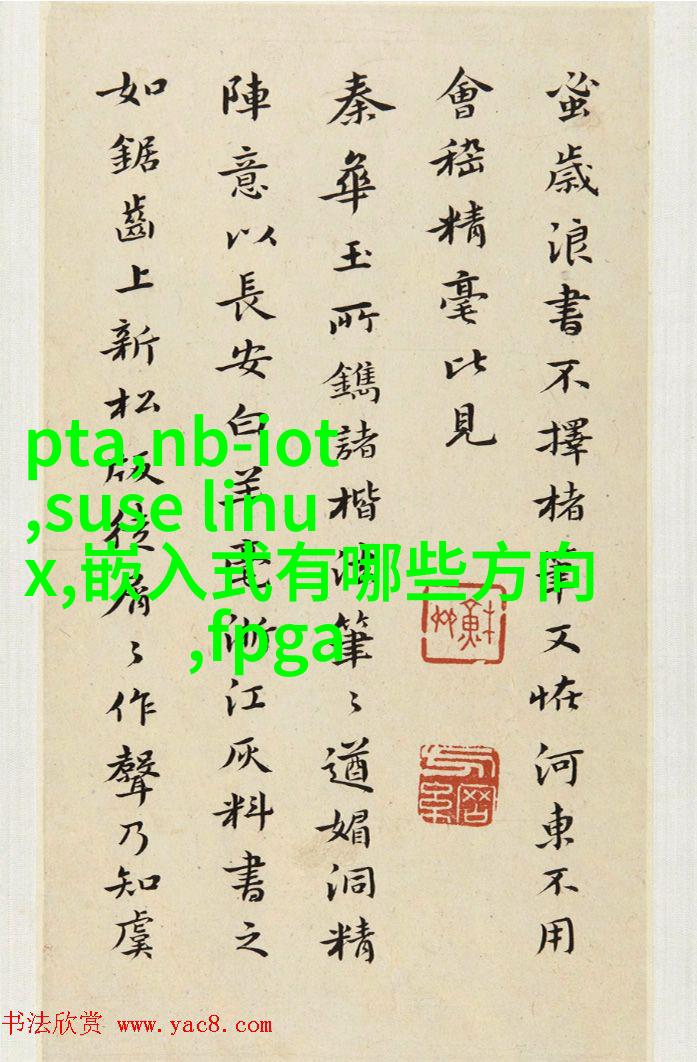 蚤歲浪書不擇楮筆又恠河東不用
會稽精毫比見
秦華玉所鐫諸楷法筆〻遒媚洞精
陣意以長安白羊毫浙江灰料書之
如鋸齒上新松版從屑〻作聲乃知虞
pta,nb-iot
,suse linu
x,嵌入式有哪些方向
,fpga
书法欣赏 www.yac8.com